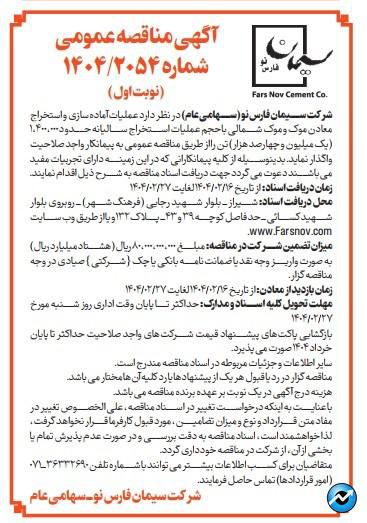 آگهی مناقصه عمومی
شماره ۱۴۰۴/۲۰۵۴
(نوبت اول)
سیمان
فارس نو
Fars Nov Cement Co.
شرکت سیمان فارس نو (سهامی عام) در نظر دارد عملیات آماده سازی و استخراج
معادن موک و موک شمالی با حجم عملیات استخراج سالیانه حدود ۱.۴۰۰.۰۰۰
(یک میلیون و چهارصد هزار) تن را از طریق مناقصه عمومی به پیمانکار واجد صلاحیت
واگذار نماید. بدینوسیله از کلیه پیمانکارانی که در این زمینه دارای تجربیات مفید
می باشند دعوت می گردد جهت دریافت اسناد مناقصه به شرح ذیل اقدام نمایند.
زمان دریافت اسناد: از تاریخ ۱۴۰۴/۰۲/۱۶ لغایت ۱۴۰۴/۰۲/۲۷
محل دریافت اسناد: شیراز - بلوار شهید رجایی (فرهنگ شهر) - روبروی بلوار
شهید کسائی - حد فاصل کوچه ۳۹ و ۴۳ - پلاک ۱۳۲ و یا از طریق وب سایت
www.Farsnov.com.
میزان تضمین شرکت در مناقصه: مبلغ ۸۰.۰۰۰.۰۰۰.۰۰۰ ریال (هشتاد میلیارد ریال)
به صورت واریز وجه نقد یا ضمانت نامه بانکی یا چک (شرکتی) صیادی در وجه
مناقصه گزار.
زمان بازدید از معادن: از تاریخ ۱۴۰۴/۰۲/۱۶ لغایت ۱۴۰۴/۰۲/۲۷
مهلت تحویل کلیه اسناد و مدارک: حداکثر تا پایان وقت اداری روز شنبه مورخ
۱۴۰۴/۰۲/۲۷
بازگشایی پاکت های پیشنهاد قیمت شرکت های واجد صلاحیت حداکثر تا پایان
خرداد ۱۴۰۴ صورت می پذیرد.
سایر اطلاعات و جزئیات مربوطه در اسناد مناقصه مندرج است.
مناقصه گزار در رد یا قبول هر یک از پیشنهادها یا رد کلیه آن ها مختار می باشد.
هزینه درج آگهی در یک نوبت بر عهده برنده مناقصه می باشد.
با عنایت به اینکه درخواست تغییر در اسناد مناقصه، علی الخصوص تغییر در
مفاد متن قرارداد و نوع و میزان تضامین، مورد قبول کارفرما قرار نخواهد گرفت،
لذا خواهشمند است، اسناد مناقصه به دقت بررسی و در صورت عدم پذیرش تمام یا
بخشی از آن، از شرکت در مناقصه خودداری گردد.
متقاضیان برای کسب اطلاعات بیشتر می توانند با شماره تلفن ۳۶۶۳۳۲۶۹۰-۰۷۱
(امور قراردادها) تماس حاصل فرمایند.
شرکت سیمان فارس نو - سهامی عام